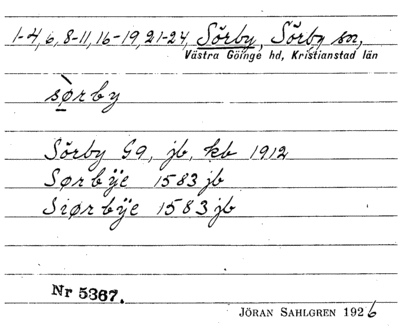 1-4, 6, 8-11, 16-19, 21-24, Sörby, Sörby sn,
Västra Göinge hd, Kristianstad län
sø̀rby
Sörby G9, jb, kb 1912
Sørbÿe 1583 jb
Siørbÿe 1583 jb
Nr 5367.
JÖRAN SAHLGREN 1926